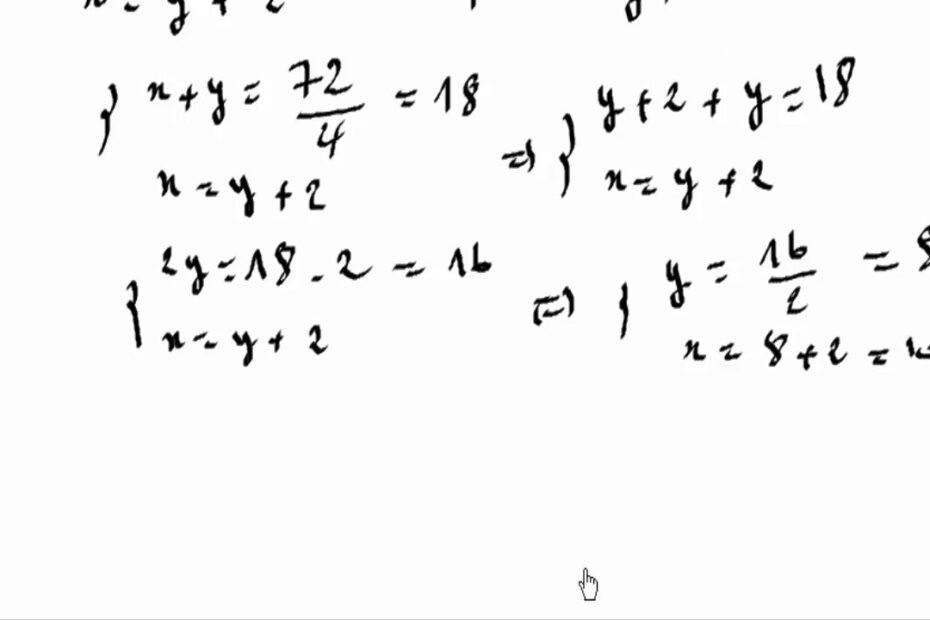 { x + y = 72/4 = 18
x = y + 2
=> { y + 2 + y = 18
x = y + 2
{ 2y = 18 - 2 = 16
x = y + 2
=> { y = 16/2 = 8
x = 8 + 2 =